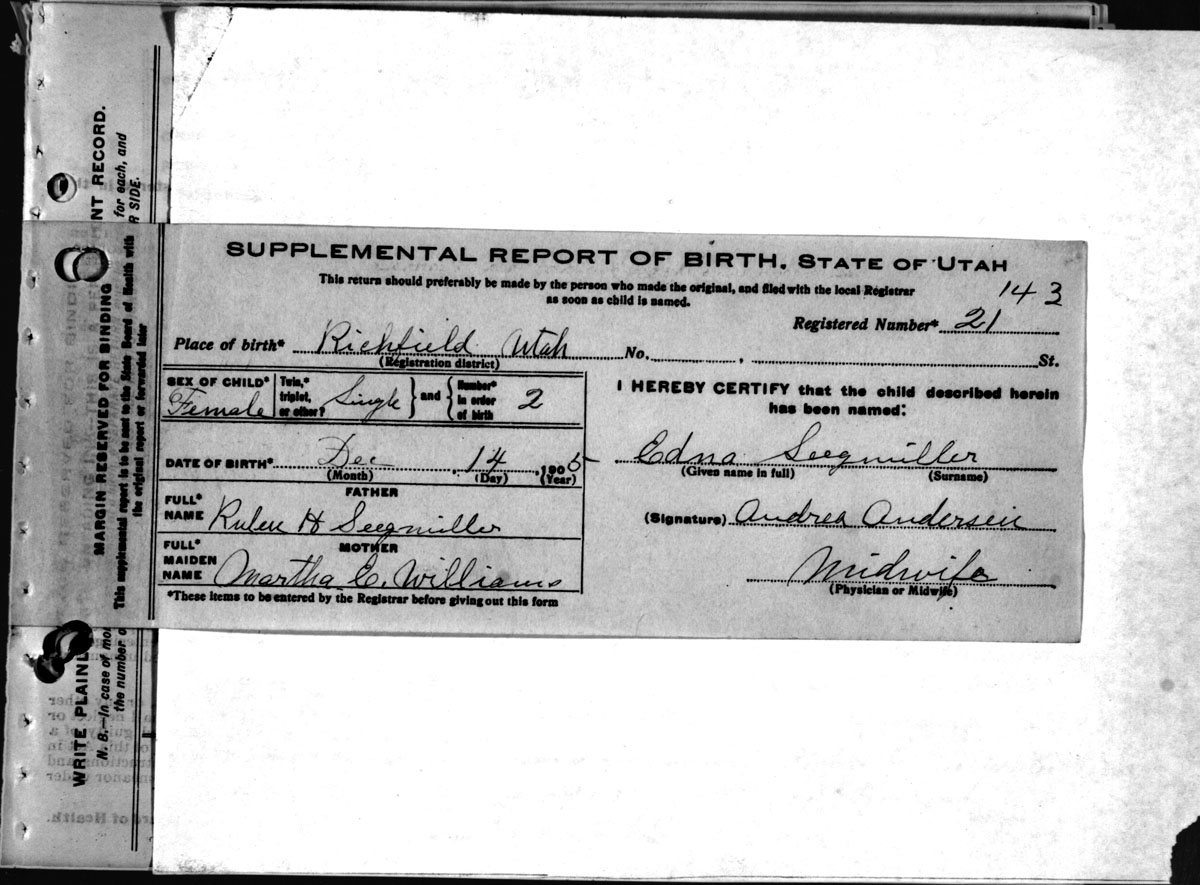 SUPPLEMENTAL REPORT OF BIRTH. STATE OF UTAH
This return should preferably be made by the person who made the original, and filed with the local Registrar
as soon as child is named.
143
Registered Number* 21
Place of birth* Richfield Utah No. , St.
(Registration district)
SEX OF CHILD* Female
Twin,* triplet, or other? Single } and { Number* in order of birth 2
DATE OF BIRTH* Dec 14 1905
(Month) (Day) (Year)
FATHER
FULL* NAME Ruben H Seegmiller
MOTHER
FULL* MAIDEN NAME Martha E. Williams
*These items to be entered by the Registrar before giving out this form
I HEREBY CERTIFY that the child described herein
has been named:
Edna Seegmiller
(Given name in full) (Surname)
(Signature) Andrea Andersen
Midwife
(Physician or Midwife)
MARGIN RESERVED FOR BINDING
This supplemental report is to be sent to the State Board of Health with
the original report or forwarded later
WRITE PLAINL
NT RECORD.
N. B.—In case of mo
for each, and
the number o
R SIDE.